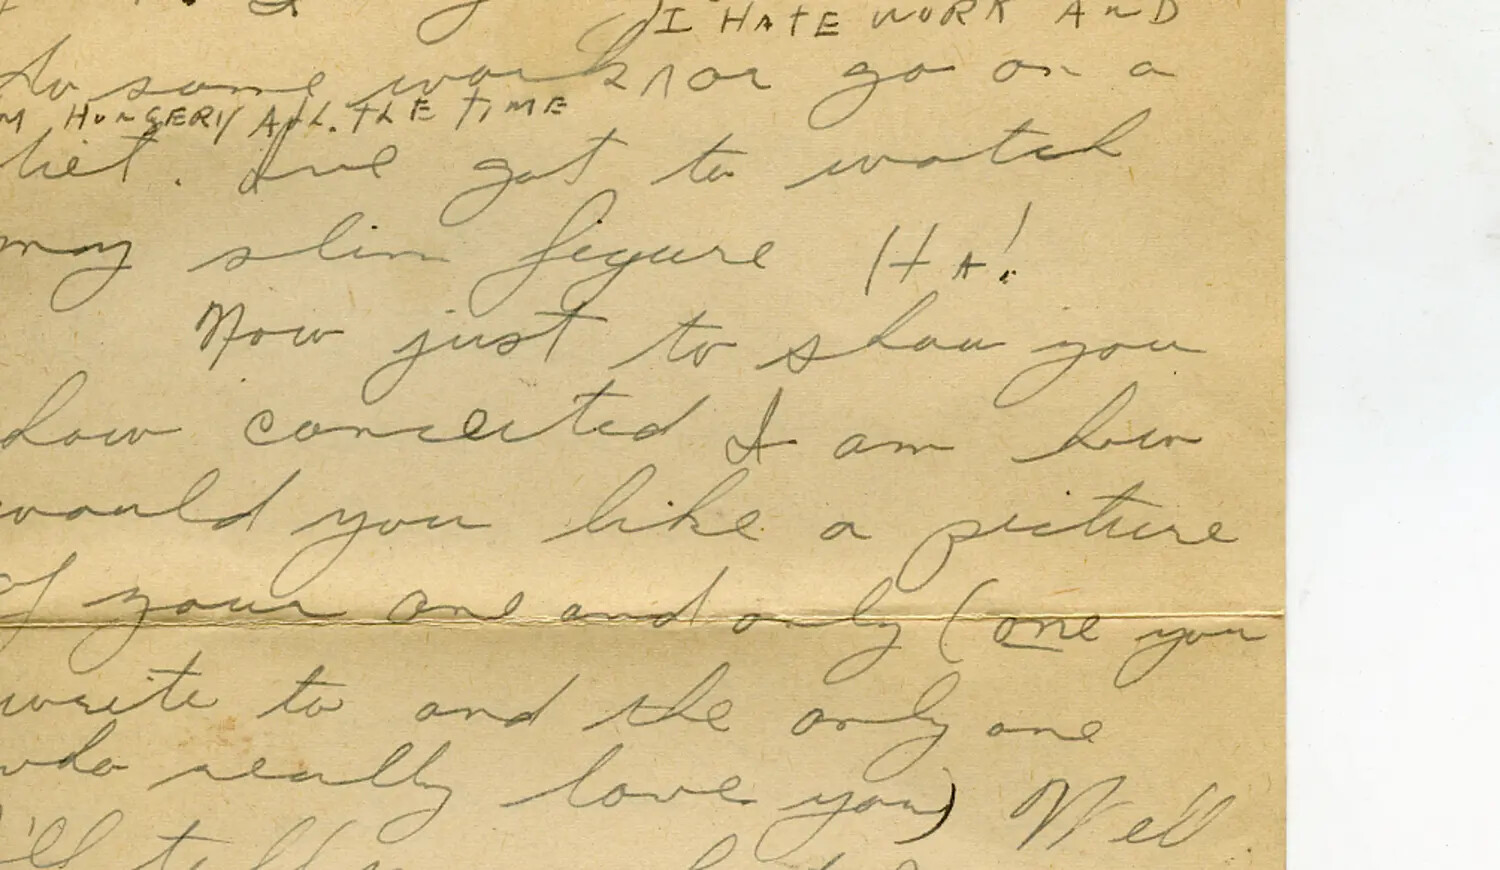 I HATE WORK AND
do some work nor go on a
M HUNGERY ALL. THE TIME
diet. I've got to watch
my slim figure HA!
Now just to show you
how conceited I am how
would you like a picture
of your one and only (one you
write to and the only one
who really love you) Well
I'll tell